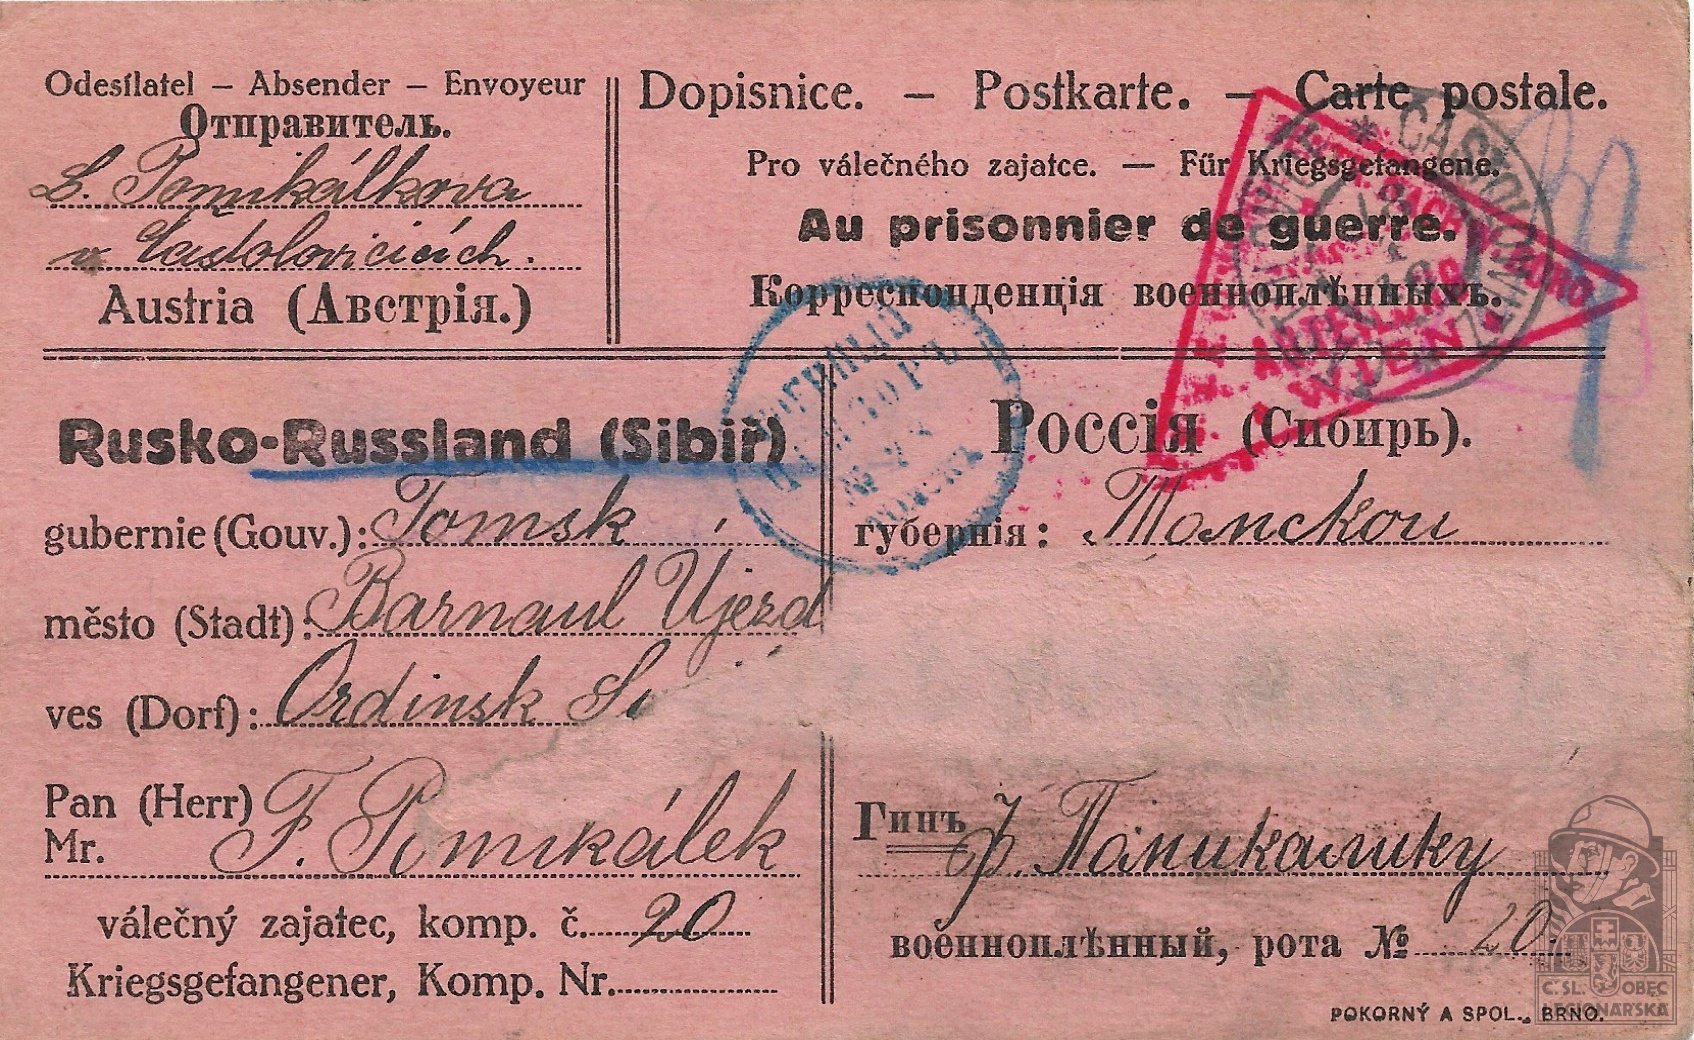 Odesílatel – Absender – Envoyeur
Отправитель.
L. Tomikálkova
v Častolovicích.
Austria (Австрія.)
Dopisnice. – Postkarte. – Carte postale.
Pro válečného zajatce. – Für Kriegsgefangene.
Au prisonnier de guerre.
Корреспонденція военноплѣнныхъ.
WIEN
Rusko-Russland (Sibiř)
gubernie (Gouv.): Tomsk
město (Stadt): Barnaul Ujezd
ves (Dorf): Ordinsk
Pan (Herr)
Mr. F. Pomikálek
válečný zajatec, komp. č. 20
Kriegsgefangener, Komp. Nr.
Россія (Сибирь).
губернія: Томской
Гинъ Ф. Помикалику
военноплѣнный, рота № 20.
POKORNÝ A SPOL., BRNO.
Č.SL. OBEC
LEGIONÁŘSKÁ